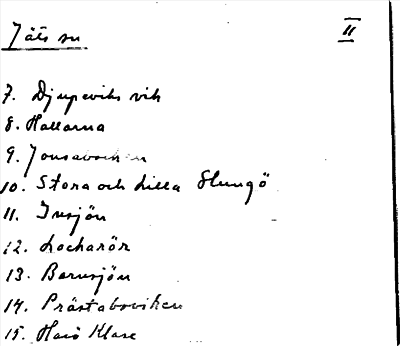 Jäts sn
II
7. Djupeviks vik
8. Hallarna
9.
10. Stora och Lilla Slungö
11. Insjön
12. Lockarör
13. Barnsjön
14. Prästaboviken
15. Klase